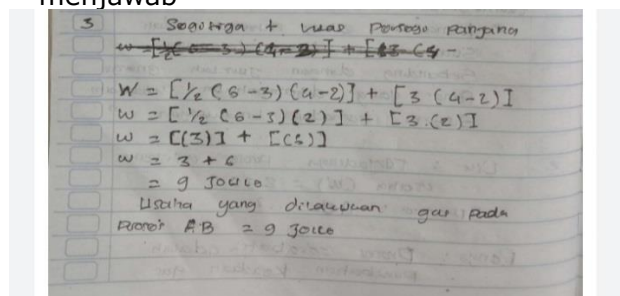 menjawab
3 Segitiga + luas persegi panjang
w = [½(6 - 3)(4-2)] + [3 (4 -
W = [1/2 (6-3)(4-2)] + [3 (4-2)]
w = [1/2 (6-3)(2)] + [3.(2)]
w = [(3)] + [(6)]
w = 3 + 6
= 9 Joule.
Usaha yang dilakukan gas pada
proses AB = 9 Joule